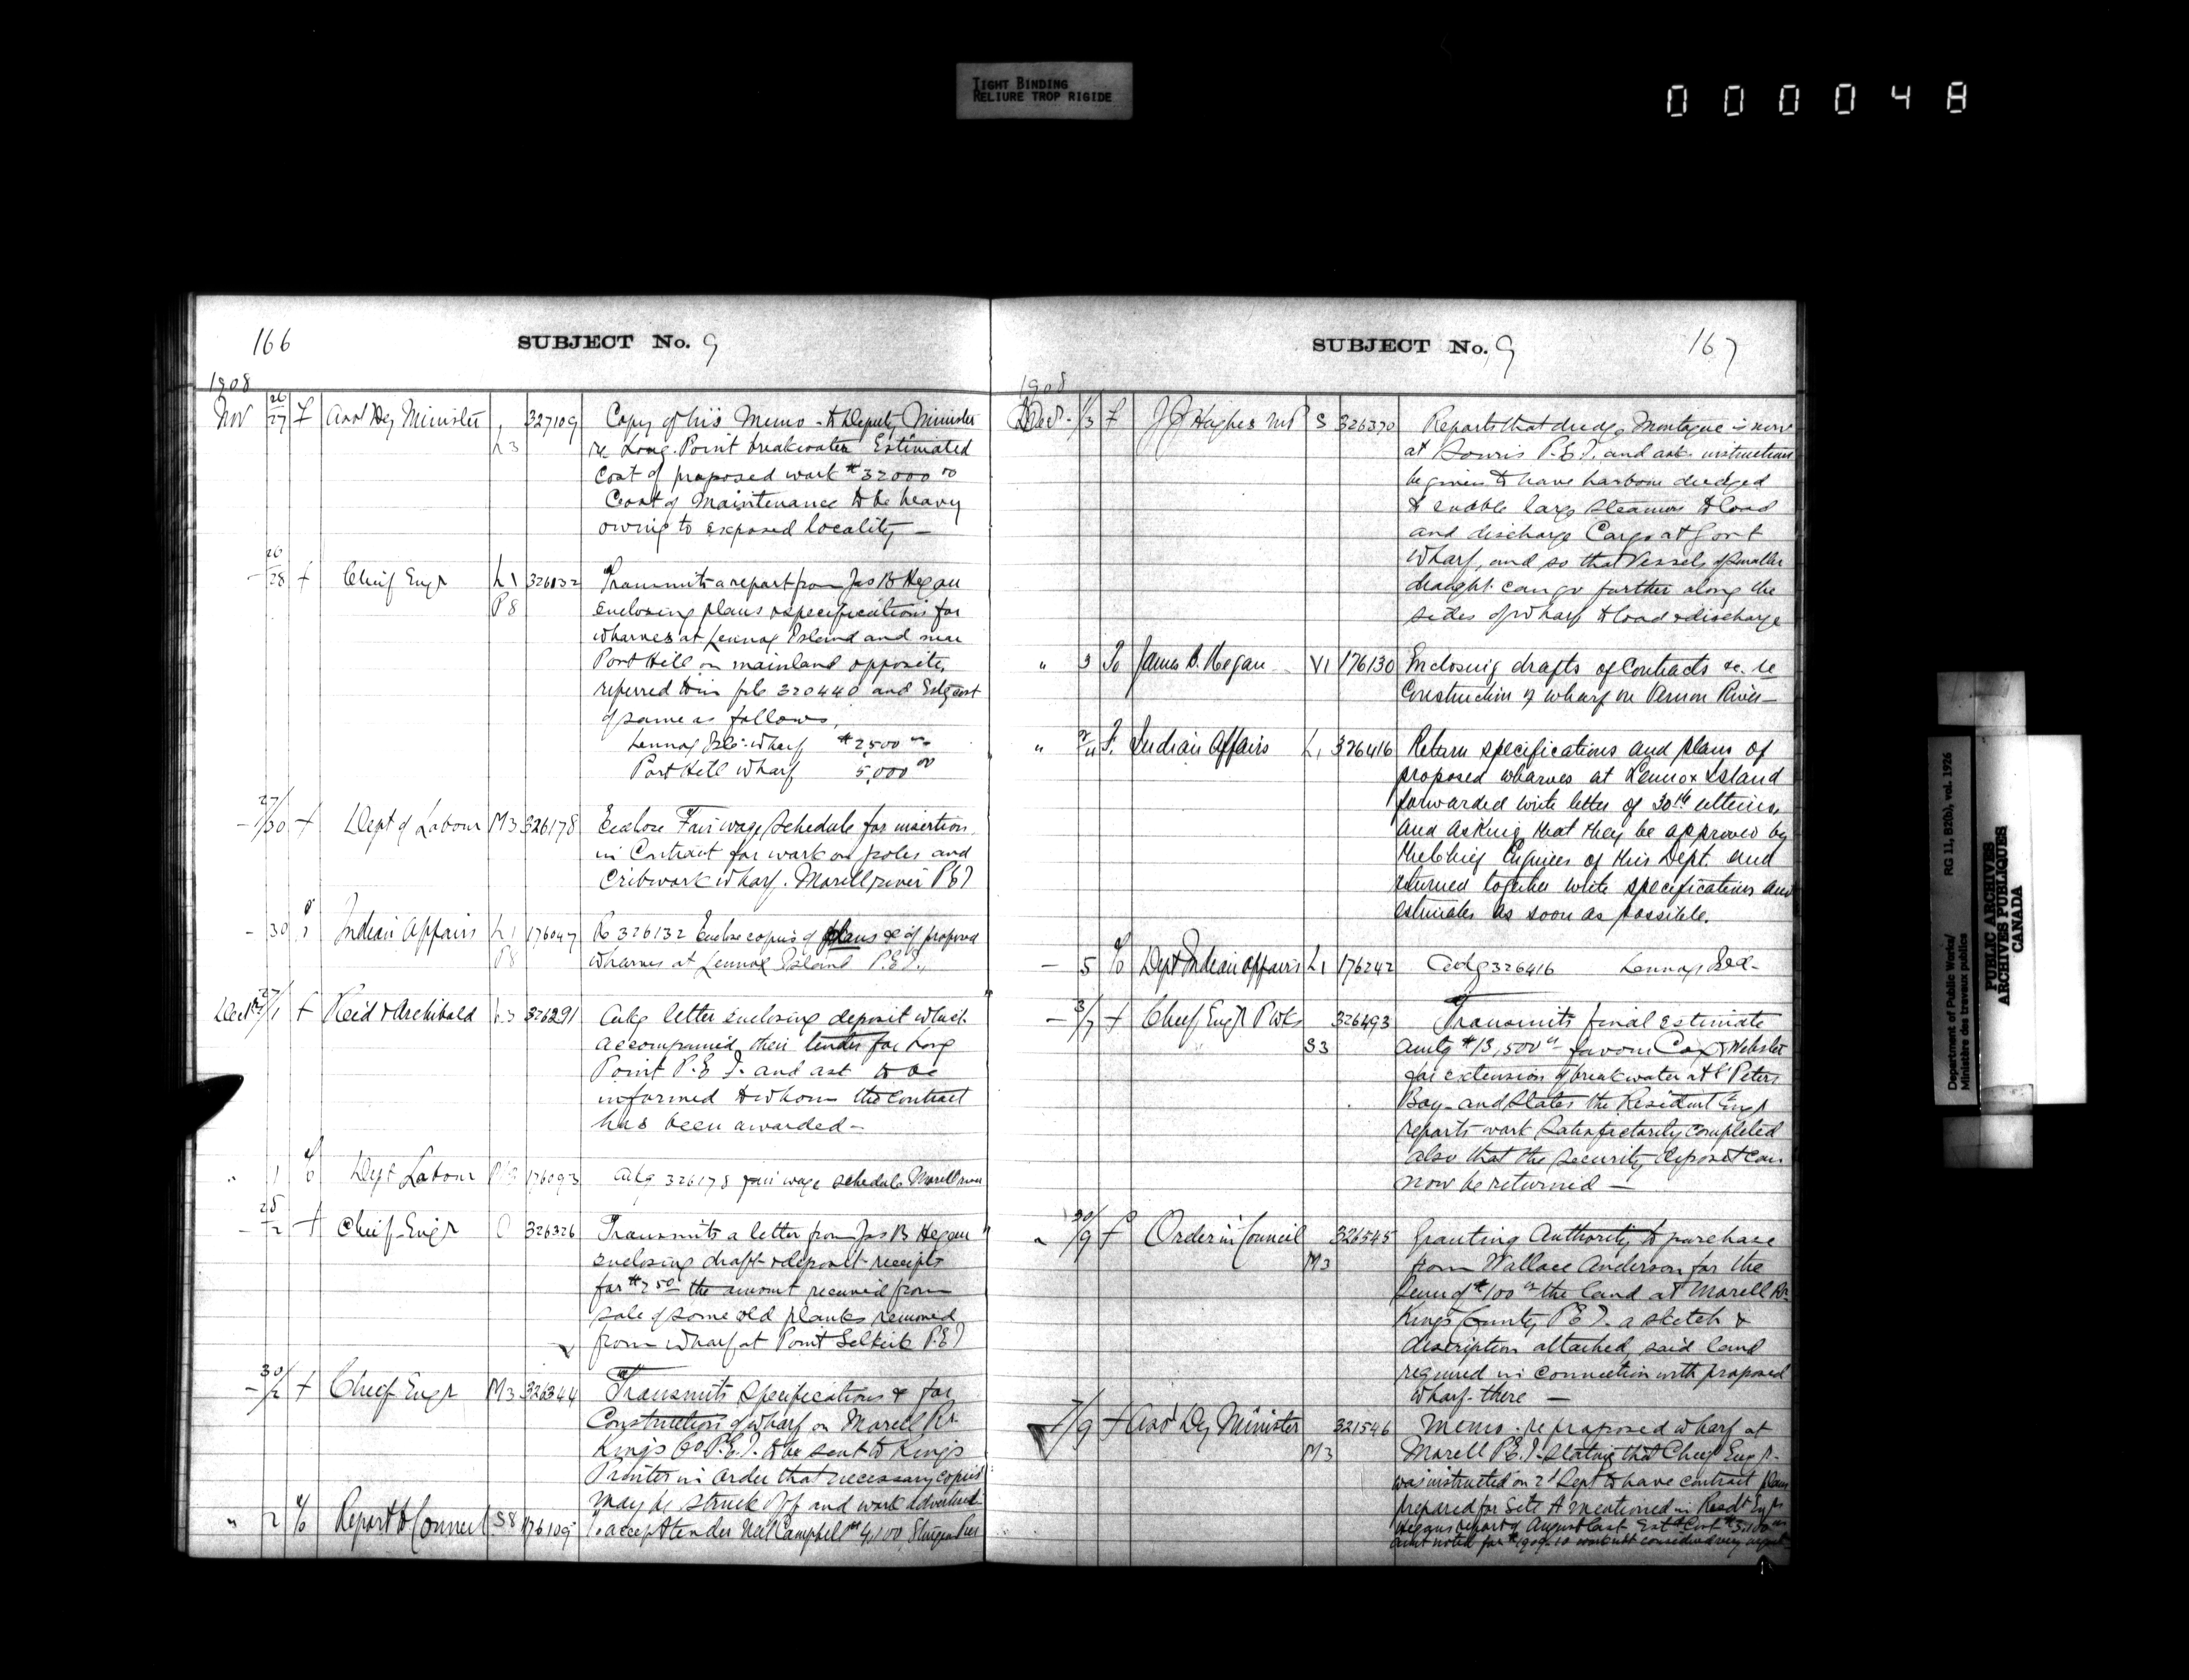 TIGHT BINDING
RELIURE TROP RIGIDE
000048
166
SUBJECT No. 9
1908
Nov 26/27 f Asst Dy Minister L3 327109 Copy of his Memo to Deputy Minister
re Long Point breakwater Estimated
cost of proposed work $32000 00
Cost of Maintenance to be heavy
owing to exposed locality —
— 26/28 f Chief Engr L1 326132 Transmits a report from Jas B Hegan
P8 enclosing plans & specifications for
wharves at Lennox Island and near
Port Hill on mainland opposite,
referred to in file 320440 and Est cost
of same as follows,
Lennox Isl. Wharf $2,500 00
Port Hill Wharf 5,000 00
— 27/30 f Dept of Labour M3 326178 Enclose Fair wage schedule for insertion
in Contract for work on poles and
Cribwork wharf. Morell river P E I
— 30 Indian Affairs L1 176047 Re 326132 Enclose copies of plans &c of proposed
P8 wharves at Lennox Island P.E.I.
Dec 27/1 f Reid & Archibald L3 326291 Ackg letter enclosing deposit which
accompanied their tender for Long
Point P.E I. and ask to be
informed to whom the contract
has been awarded —
" 1 To Dept Labour M3 176093 Ackg 326178 fair wage schedule Morell river
— 28/2 f Chief Engr 326326 Transmits a letter from Jas B Hegan
enclosing draft & deposit receipts
for $2 50 the amount received from
sale of some old planks removed
from wharf at Point Selkirk P.E I
— 30/2 f Chief Engr M3 326344 Transmits specifications & for
Construction of wharf on Morell Rr
Kings Co P.E.I. to be sent to Kings
Printer in order that necessary copies
may be struck off and work advertised
" 2 To Report to Council S8 176109 To accept tender Neil Campbell $4,100, Sturgeon Pier
SUBJECT No. 9
167
1908
Dec 1/3 f J J Hughes MP S 326370 Reports that dredge Montague is now
at Souris P.E I. and ask instructions
be given to have harbour dredged
to enable large steamers to load
and discharge Cargo at Govt
Wharf, and so that Vessels of smaller
draught can go further along the
sides of wharf to load & discharge
" 3 To James B. Hegan V1 176130 Enclosing drafts of Contracts &c. re
Construction of wharf on Vernon River —
" F. Indian Affairs L1 326416 Return specifications and plans of
proposed wharves at Lennox Island
forwarded with letter of 30th ultimo,
and asking that they be approved by
the Chief Engineer of this Dept. and
returned together with specifications and
estimates as soon as possible.
— 5 To Dept Indian Affairs L1 176242 Ackg 326416 Lennox Isld.
— 3/7 f Chief Engr P Wks 326493 Transmits final estimate
S3 amtg $13,500 00 favour Cox & Webster
for extension of breakwater at St Peters
Bay — and states the Resident Engr
reports work satisfactorily completed
also that the security deposit can
now be returned —
" 30/9 f Order in Council 326545 Granting Authority to purchase
M3 from Wallace Anderson for the
sum of $100 00 the land at Morell Rr
Kings County P E I. a sketch &
description attached, said land
required in connection with proposed
Wharf there —
7/9 f Asst Dy Minister 321546 Memo re proposed wharf at
M3 Morell P E I. stating that Chief Engr
was instructed on 2d Sept to have contract plans
prepared for Site A mentioned in Resdt Engrs
Hegans report of August last Est Cost $3,100 00
amt noted for 1909-10 work not considered very urgent
Department of Public Works/
Ministère des travaux publics
RG 11, B2(b), vol. 1926
PUBLIC ARCHIVES
ARCHIVES PUBLIQUES
CANADA